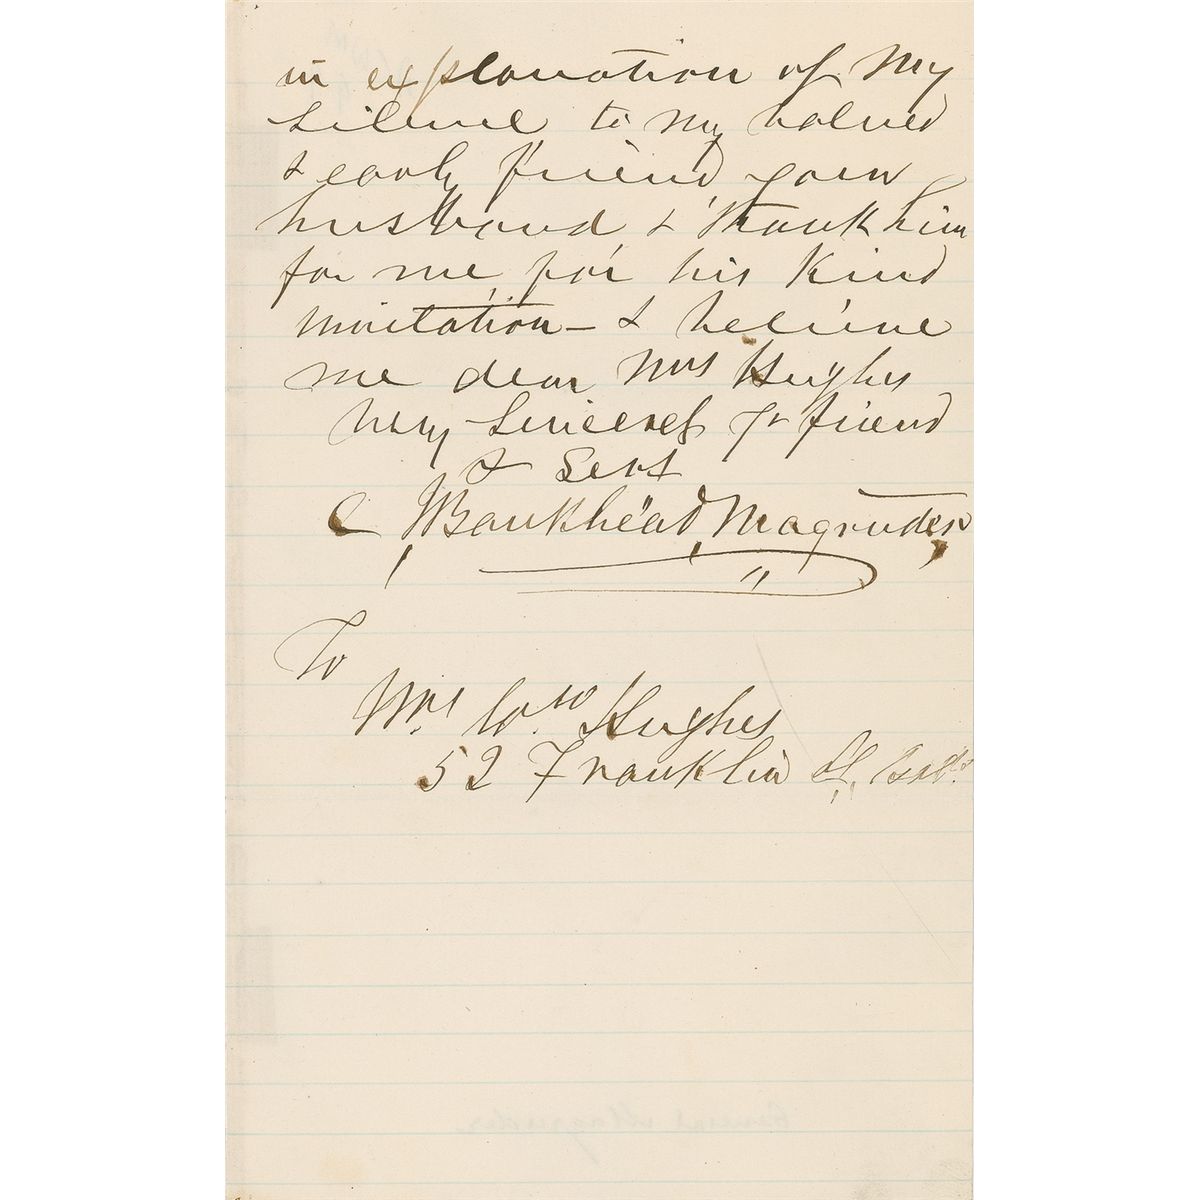 in explanation of my
silence to my valued
& early friend your
husband & thank him
for me for his kind
invitation - & believe
me dear Mrs Hughes
very sincerely yr friend
& Servt
J Bankhead Magruder
To
Mrs Wm Hughes
52 Franklin St. Balto
General Magruder